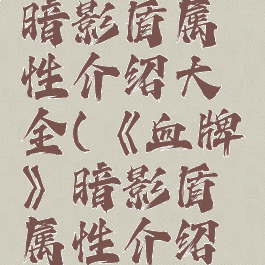 暗影盾属
性介绍大
全(《血牌
》暗影盾
属性介绍